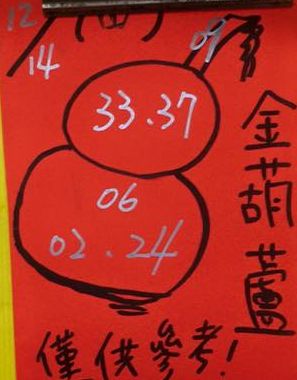 12
14
09
33.37
06
02.24
金葫蘆
僅供參考!